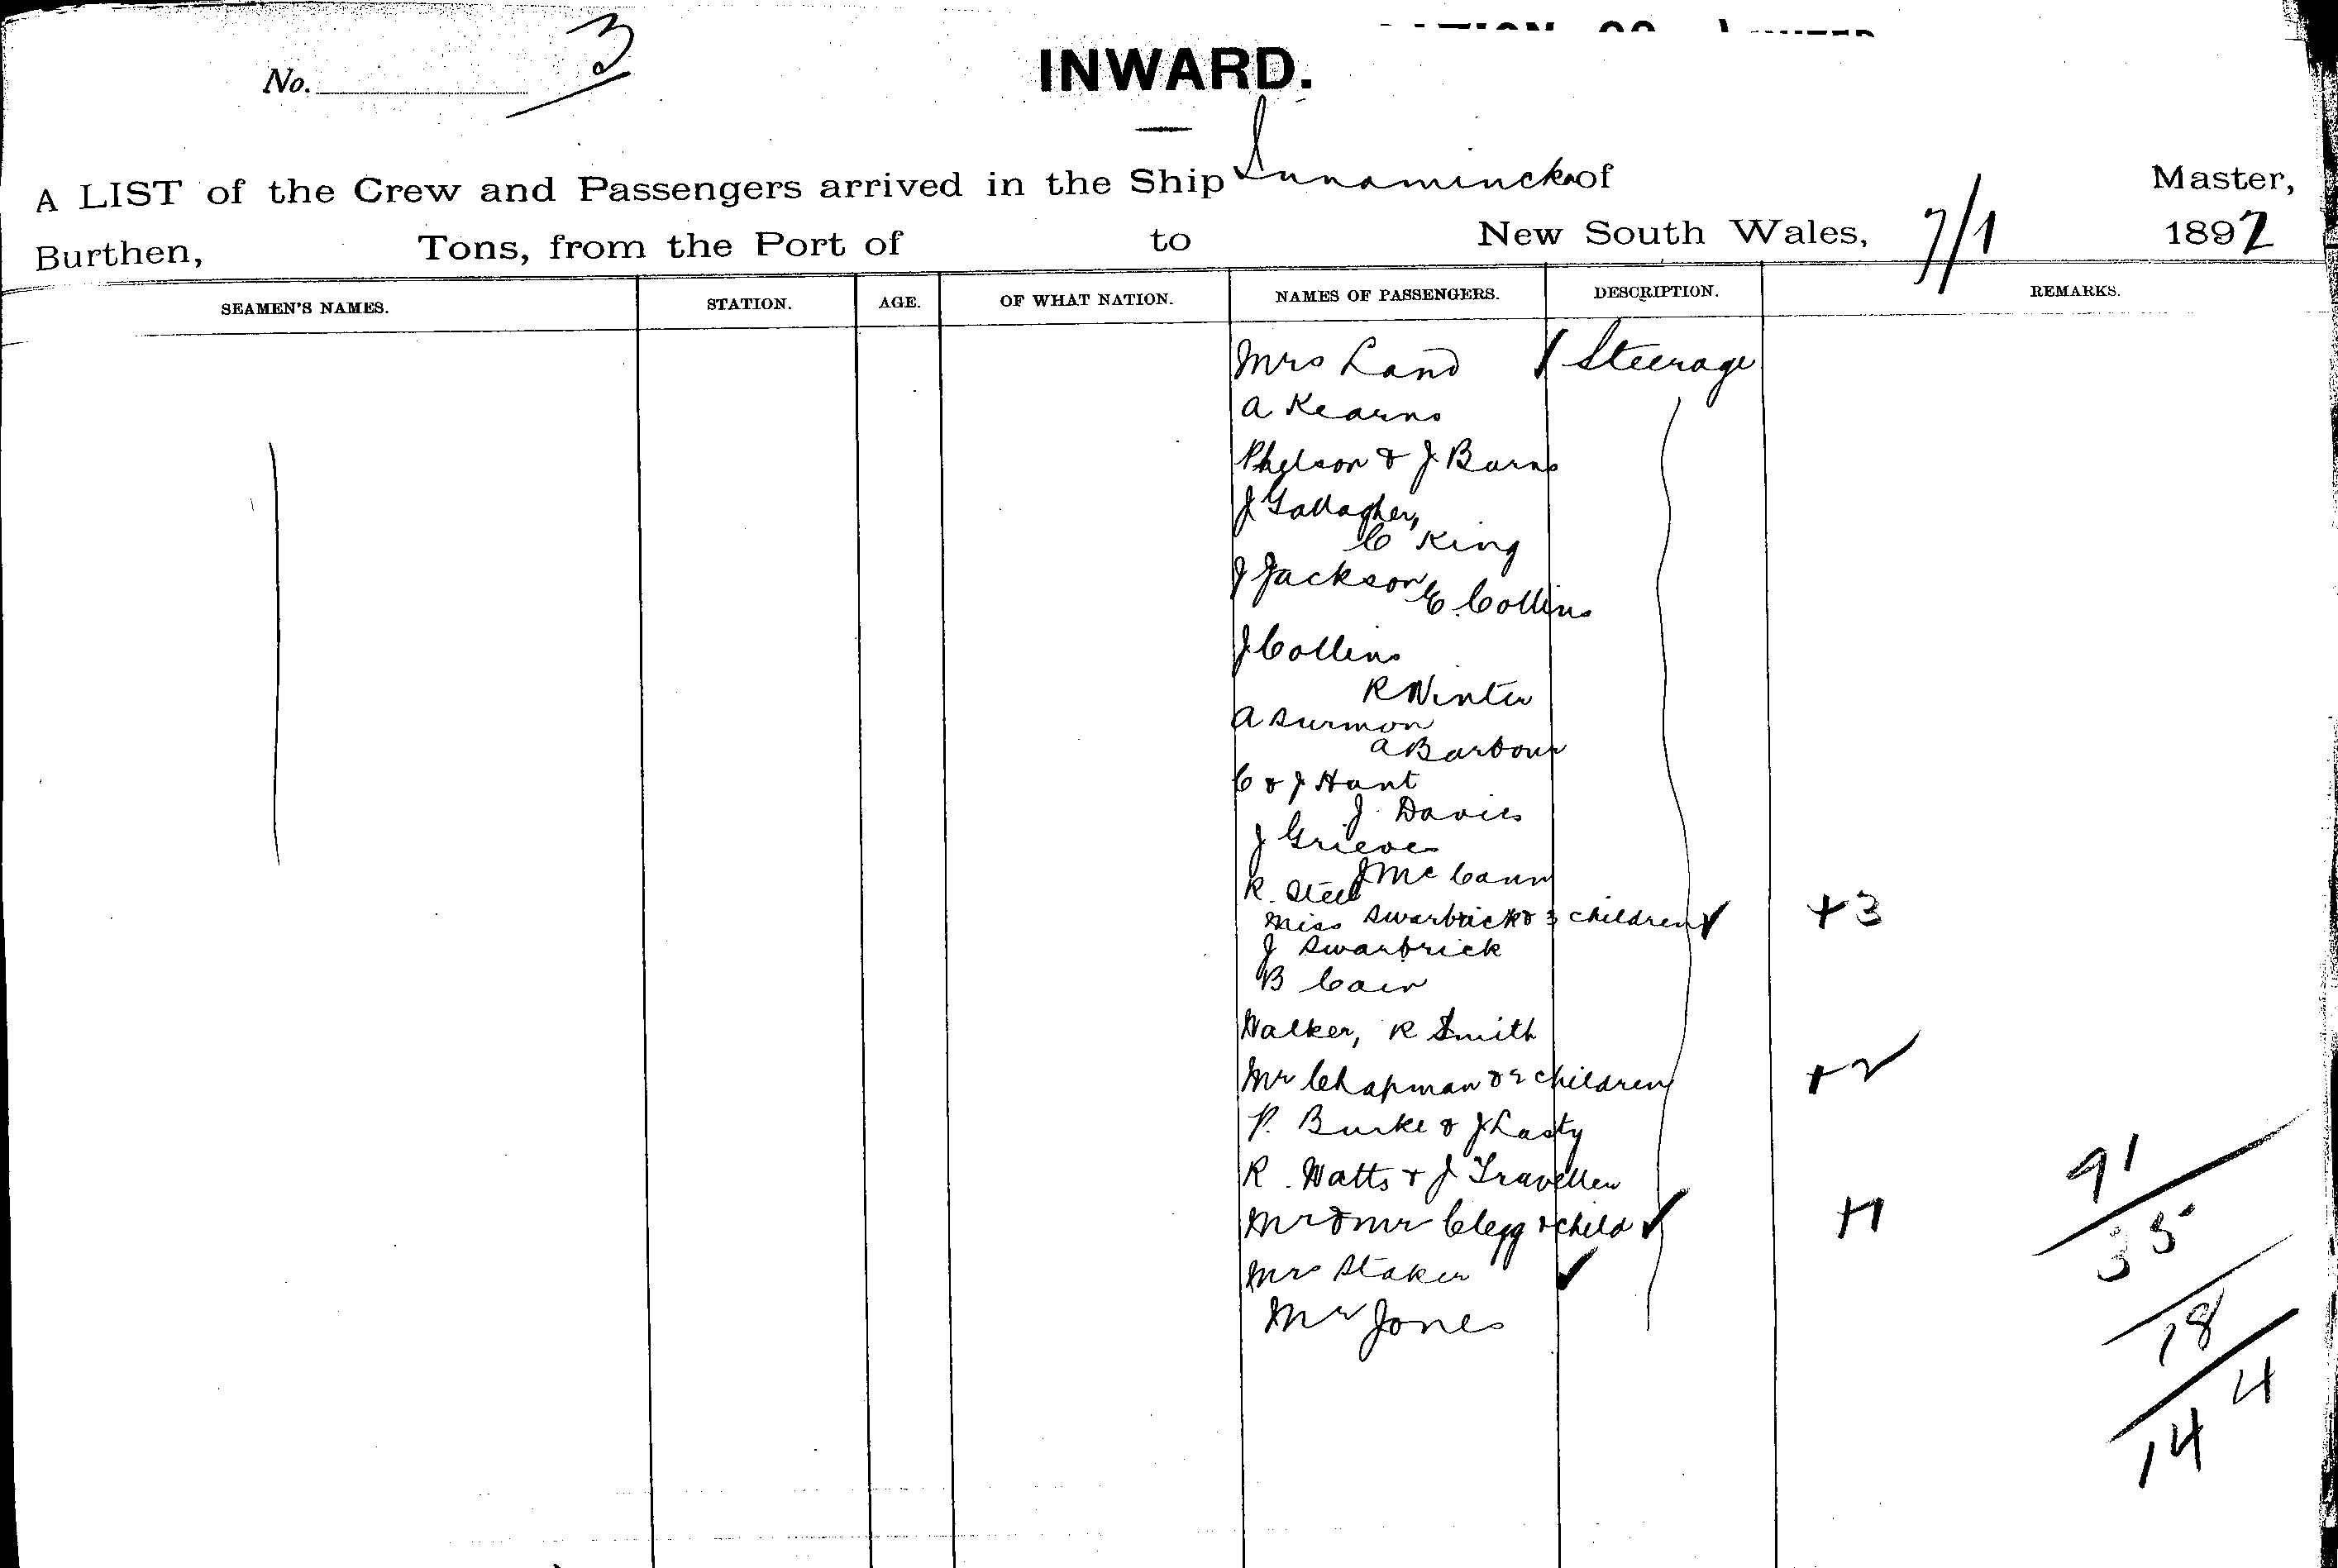 No. 3
INWARD.
A LIST of the Crew and Passengers arrived in the Ship Innamincka of Master,
Burthen, Tons, from the Port of to New South Wales, 7/1 1892
SEAMEN'S NAMES. STATION. AGE. OF WHAT NATION. NAMES OF PASSENGERS. DESCRIPTION. REMARKS.
Mrs Land Steerage
A Kearns
Phelson & J Burns
J Gallagher,
C King
J Jackson
E. Collins
J Collins
R Winter
A Surmon
A Barbour
C & J Hunt
J Davies
J Grieves
J McCann
R. Steel
Miss Swarbrick & 3 children +3
J Swarbrick
B Cain
Walker, R Smith
Mr Chapman & 2 children +2
P. Burke & J Lasty
R. Watts & J Traveller
Mr & Mr Clegg & child +1
Mrs Staker
Mr Jones
91
35
18
4
14